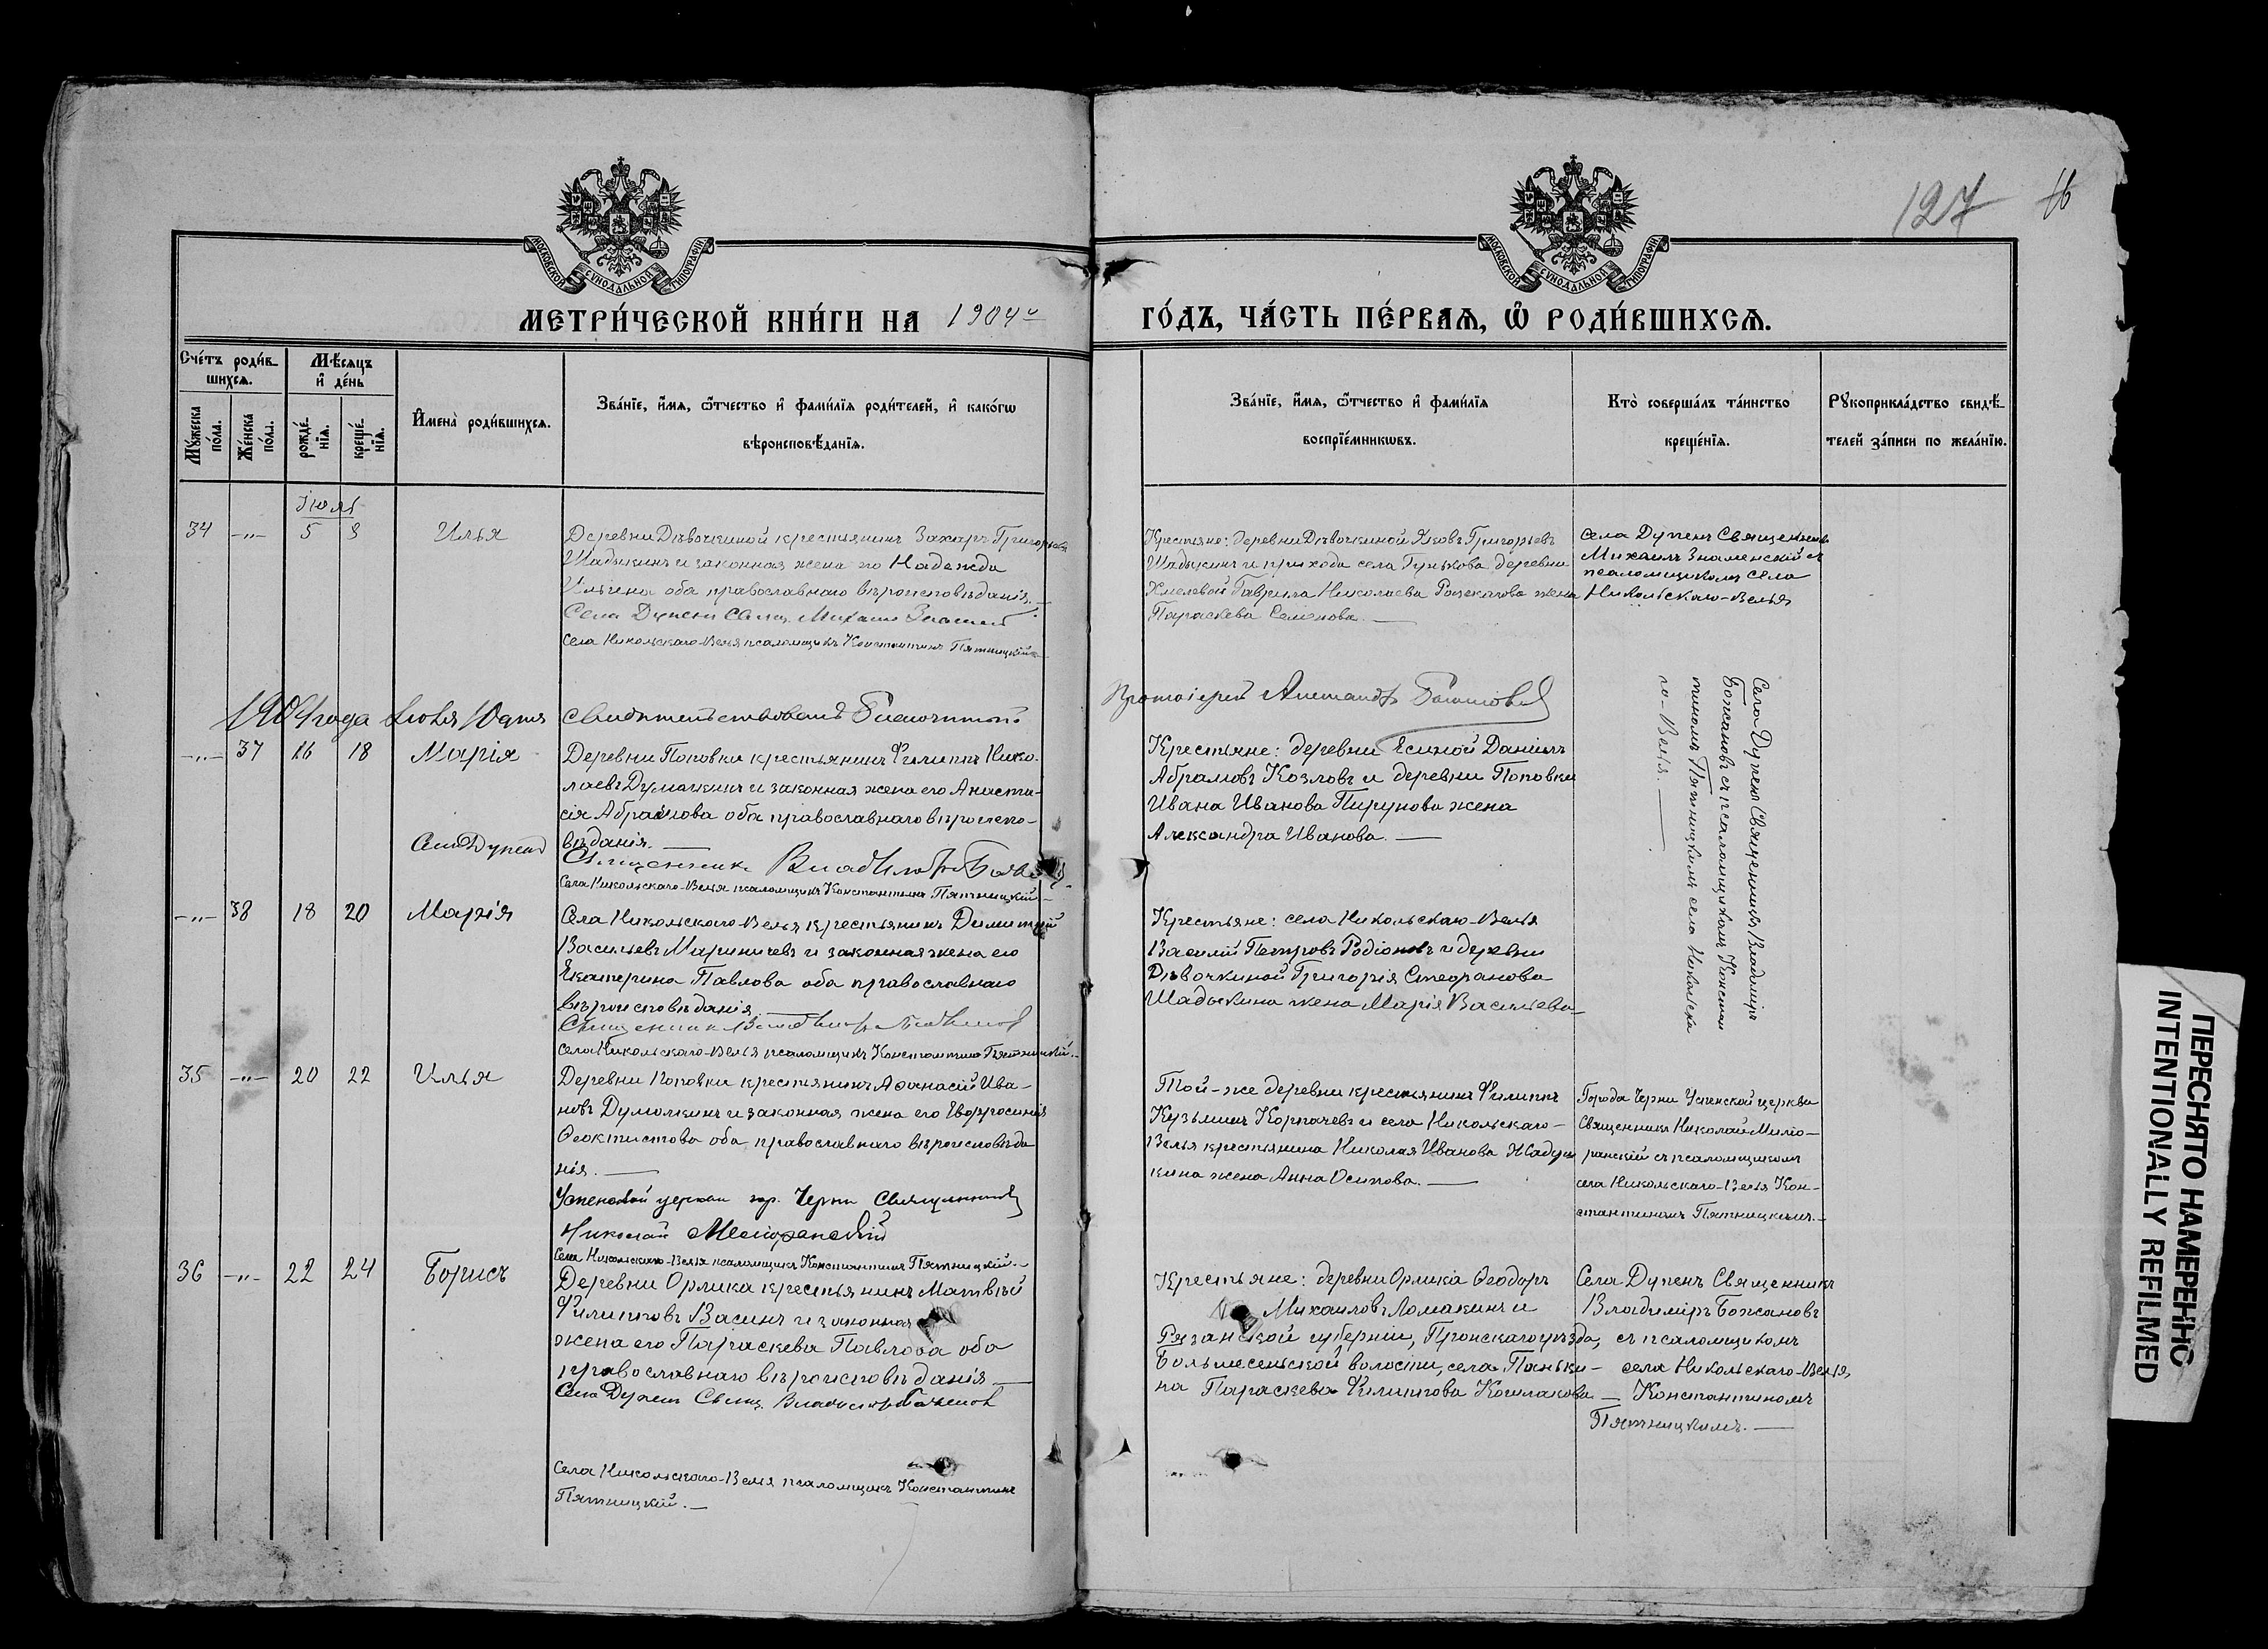 127 16
МОСКОВСКОЙ СѴНОДАЛЬНОЙ ТИПОГРАФІИ
МОСКОВСКОЙ СѴНОДАЛЬНОЙ ТИПОГРАФІИ
МЕТРИ́ЧЕСКОЙ КНИ́ГИ НА 1904й ГО́ДЪ, ЧА́СТЬ ПЕ́РВАѦ, Ѡ҆ РОДИ́ВШИХСѦ.
Сче́тъ роди́в-
шихсѧ.
Мꙋ́жеска по́ла.
Же́нска по́ла.
Мѣ́сѧцъ
и҆ де́нь
рожде́-
нїѧ.
креще́-
нїѧ.
И҆мена̀ роди́вшихсѧ.
Зва́нїе, и҆́мѧ, ѻ҆́тчество и҆ фами́лїѧ роди́телей, и҆ како́гѡ
вѣроисповѣ́данїѧ.
Зва́нїе, и҆́мѧ, ѻ҆́тчество и҆ фами́лїѧ
воспрїе́мникѡвъ.
Кто̀ соверша́лъ та́инство
креще́нїѧ.
Рꙋкоприкла́дство свидѣ́-
телей за́писи по жела́нїю.
Іюль
34 -„- 5 8 Илья
Деревни Дѣвочкиной крестьянинъ Захаръ Григорьевъ
Шадыкинъ и законная жена его Надежда
Ильина оба православнаго вѣроисповѣданія.
Села Дупенъ Свящ. Михаилъ Знаменскій
Села Никольскаго-Велья псаломщикъ Константинъ Пятницкій
Крестьяне: деревни Дѣвочкиной Яковъ Григорьевъ
Шадыкинъ и прихода села Гунькова деревни
Хмелевой Гавріила Николаева жена
Параскева Семенова.
Села Дупенъ Священникъ
Михаилъ Знаменскій съ
псаломщикомъ села
Никольскаго-Велья
1904 года Іюля 10 дня свидѣтельствовалъ Благочинный
Протоіерей Александръ
-„- 37 16 18 Марія
Деревни Поповки крестьянинъ Филиппъ Нико-
лаевъ Думолкинъ и законная жена его Анаста-
сія Абрамова оба православнаго вѣроиспо-
вѣданія.
Села Дупенъ Священникъ Владиміръ Божановъ
Села Никольскаго-Велья псаломщикъ Константинъ Пятницкій
Крестьяне: деревни Есиной Даніилъ
Абрамовъ Козловъ и деревни Поповки
Ивана Иванова Пирунова жена
Александра Иванова.
Села Дупенъ Священникъ Владиміръ
Божановъ съ псаломщикомъ Констан-
тиномъ Пятницкимъ села Никольска-
го-Велья.
-„- 38 18 20 Марія
Села Никольскаго-Велья крестьянинъ Димитрій
Васильевъ Мариничевъ и законная жена его
Екатерина Павлова оба православнаго
вѣроисповѣданія.
Священникъ Владиміръ Божановъ
Села Никольскаго-Велья псаломщикъ Константинъ Пятницкій.
Крестьяне: села Никольскаго-Велья
Василій Петровъ Родіоновъ и деревни
Дѣвочкиной Григорія Стефанова
Шадыкина жена Марія Васильева
35 -„- 20 22 Илья
Деревни Поповки крестьянинъ Аѳанасій Ива-
новъ Думолкинъ и законная жена его Евфросинія
Ѳеоктистова оба православнаго вѣроисповѣда
нія.
Успенской церкви гор. Черни Священникъ
Николай Меліоранскій
Села Никольскаго-Велья псаломщикъ Константинъ Пятницкій.
Той-же деревни крестьянинъ Филиппъ
Кузьминъ Корпачевъ и села Никольскаго-
Велья крестьянина Николая Иванова
кина жена Анна Осипова.
Города Черни Успенской церкви
Священникъ Николай Меліо-
ранскій съ псаломщикомъ
села Никольскаго-Велья Кон-
стантиномъ Пятницкимъ.
36 -„- 22 24 Борисъ
Деревни Орлика крестьянинъ Матвѣй
Филипповъ Васинъ и законная
жена его Параскева Павлова оба
православнаго вѣроисповѣданія
Села Дупенъ Свящ. Владиміръ Божановъ
Села Никольскаго-Велья псаломщикъ Константинъ
Пятницкій.
Крестьяне: деревни Орлика Ѳеодоръ
Михаиловъ Ломакинъ и
Рязанской губерніи, Пронскаго уѣзда,
Большесельской волости, села Паньки-
на Параскева Филиппова Кошлакова
Села Дупенъ Священникъ
Владиміръ Божановъ
съ псаломщикомъ
села Никольскаго-Велья
Константиномъ
Пятницкимъ.
ПЕРЕСНЯТО НАМЕРЕННО
INTENTIONALLY REFILMED